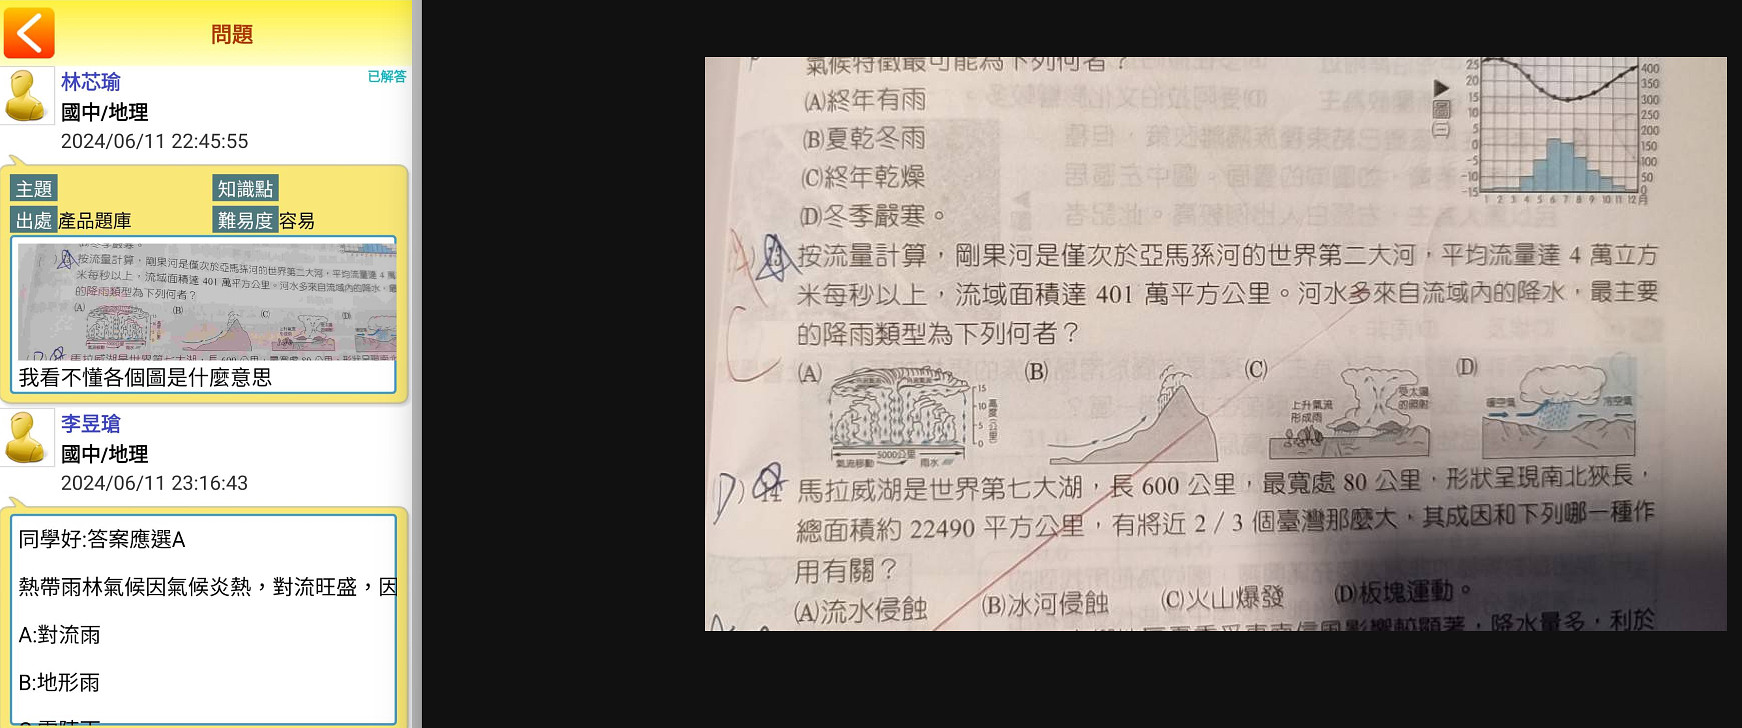 問題
林芯瑜
已解答
國中/地理
2024/06/11 22:45:55
主題
知識點
出處 產品題庫
難易度 容易
按流量計算，剛果河是僅次於亞馬孫河的世界第二大河，平均流量達 4 萬
米每秒以上，流域面積達 401 萬平方公里。河水多來自流域內的降水，最
的降雨類型為下列何者？
(A)
(B)
(C)
(D)
我看不懂各個圖是什麼意思
李昱瑲
國中/地理
2024/06/11 23:16:43
同學好:答案應選A
熱帶雨林氣候因氣候炎熱，對流旺盛，因
A:對流雨
B:地形雨
氣候特徵最可能為下列何者？
(A)終年有雨
(B)夏乾冬雨
(C)終年乾燥
(D)冬季嚴寒。
圖(三)
25
20
15
10
5
0
-5
-10
-15
400
350
300
250
200
150
100
50
0
1 2 3 4 5 6 7 8 9 10 11 12月
13 按流量計算，剛果河是僅次於亞馬孫河的世界第二大河，平均流量達 4 萬立方
米每秒以上，流域面積達 401 萬平方公里。河水多來自流域內的降水，最主要
的降雨類型為下列何者？
(A)
(B)
(C)
(D)
15
10
5
0
高度(公里)
5000公里
氣流移動
雨水
上升氣流
形成雨
受太陽
的照射
暖空氣
冷空氣
D
14 馬拉威湖是世界第七大湖，長 600 公里，最寬處 80 公里，形狀呈現南北狹長，
總面積約 22490 平方公里，有將近 2 / 3 個臺灣那麼大，其成因和下列哪一種作
用有關？
(A)流水侵蝕
(B)冰河侵蝕
(C)火山爆發
(D)板塊運動。